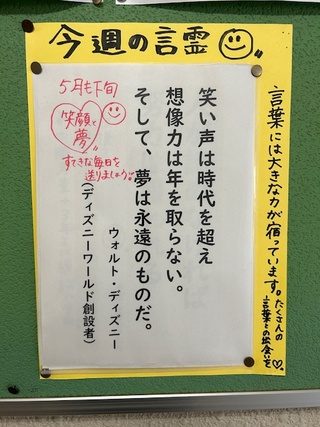 今週の言霊
言葉には大きな力が宿っています。たくさんの
言葉との出会いを
5月も下旬
笑顔と
夢
すてきな毎日を
送りましょう。
笑い声は時代を超え
想像力は年を取らない。
そして、夢は永遠のものだ。
ウォルト・ディズニー
(ディズニーワールド創設者)